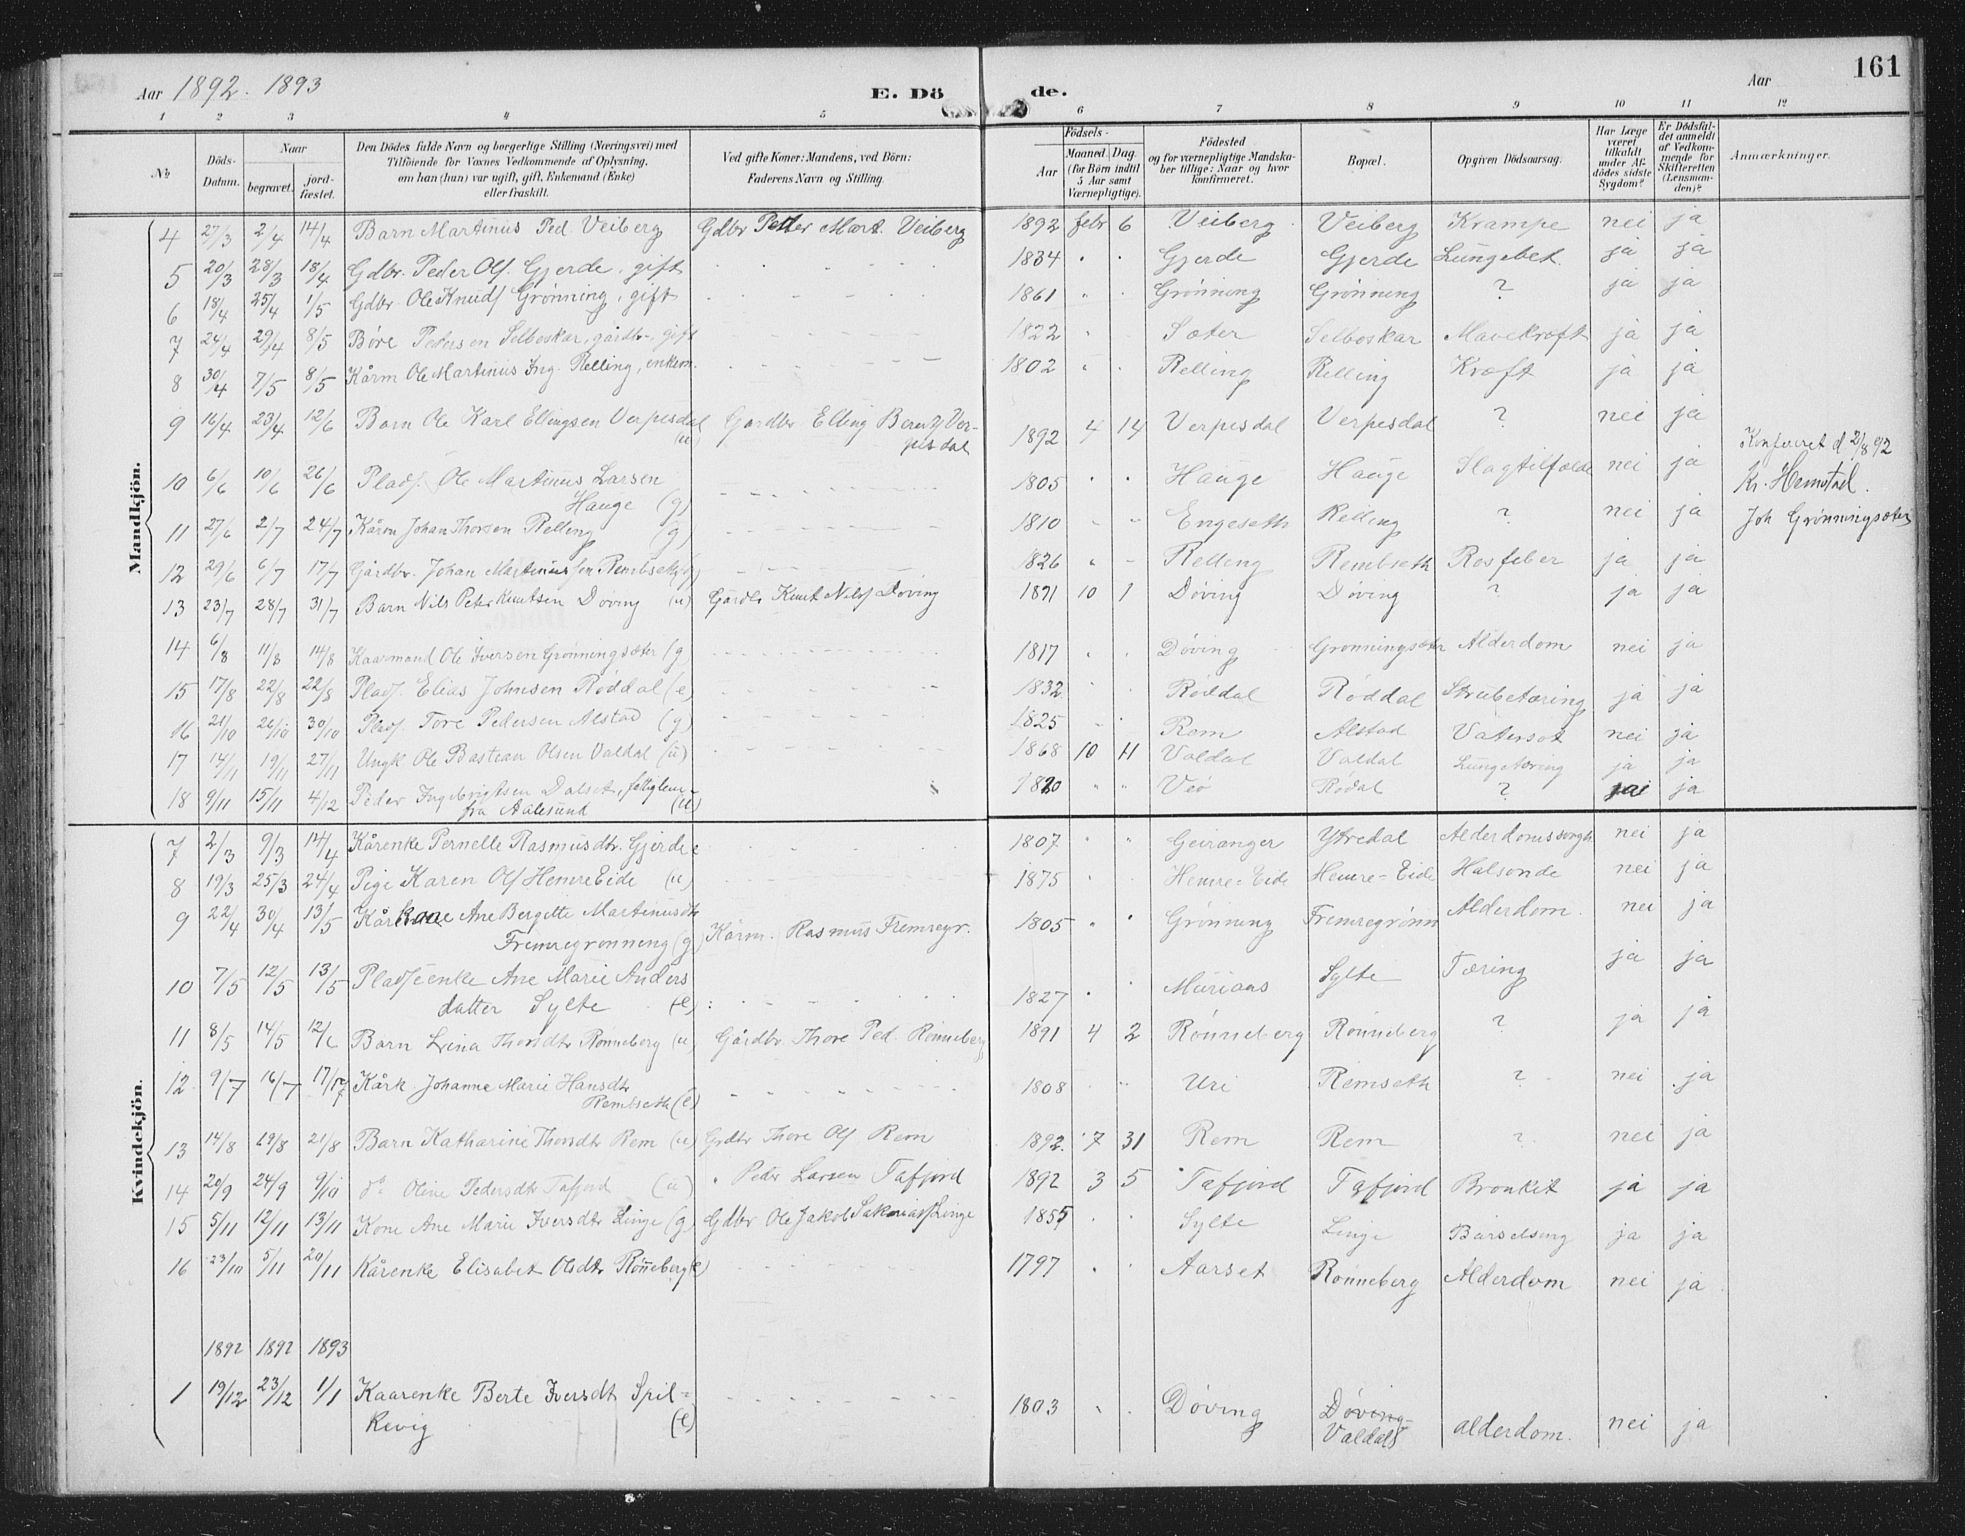 161
Aar 1892. 1893 E. Dö de. Aar
1 2 3 4 5 6 7 8 9 10 11 12
No Döds-Datum. Naar begravet. jord-fæstet. Den Dödes fulde Navn og borgerlige Stilling (Næringsvei) med Tilföiende for Voxnes Vedkommende af Oplysning, om han (hun) var ugift, gift, Enkemand (Enke) eller fraskilt. Ved gifte Koner: Mandens, ved Börn: Faderens Navn og Stilling. Födsels- Aar Maaned. Dag. (for Börn indtil 5 Aar samt Værnepligtige). Födested og for værnepligtige Mandskaber tillige: Naar og hvor konfirmeret. Bopæl. Opgiven Dödsaarsag. Har Læge været tilkaldt under Afdödes sidste Sygdom? Er Dödsfaldet anmeldt af Vedkommende for Skifteretten (Lensmanden)? Anmærkninger.
Mandkjön.
4 27/3 2/4 14/4 Barn Martinus Ped. Veiberg Gdbr Petter Mart. Veiberg 1892 febr 6 Veiberg Veiberg Krampe nei ja
5 20/3 28/3 18/4 Gdbr. Peder Ols. Gjerde, gift 1834 Gjerde Gjerde Lungebet. ja ja
6 18/4 25/4 1/5 Gdbr Ole Knuds Grønning, gift 1861 Grønning Grønning ? ja ja
7 24/4 29/4 8/5 Børe Pedersen Selboskar, gårdbr, gift 1822 Sæter Selboskar Mavekræft ja ja
8 30/4 7/5 8/5 Kårm Ole Martinus Ing. Relling, enkem. 1802 Relling Relling Kræft ja ja
9 16/4 23/4 12/6 Barn Ole Karl Ellingsen Verpesdal (u) Gårdbr Elling Berntz Ver-
pesdal 1892 4 14 Verpesdal Verpesdal ? nei ja
Konfereret d 2/8 92
10 6/6 10/6 26/6 Plads. Ole Martinus Larsen
Hauge (g) 1805 Hauge Hauge Slagtilfælde nei ja Kr. Hemstad.
11 27/6 2/7 24/7 Kårm Johan Thorsen Relling (g) 1810 Engeseth Relling ? nei ja Joh Grønningsæter
12 29/6 6/7 17/7 Gårdbr. Johan Martinussen Rembseth (g) 1826 Relling Rembseth Rosfeber ja ja
13 23/7 28/7 31/7 Barn Nils Peter Knutsen Døving (u) Gårdbr Knut Nils Døving 1891 10 1 Døving Døving ? ja ja
14 6/8 11/8 14/8 Kaarmand Ole Iversen Grønningsæter (g) 1817 Døving Grønningsæter Alderdom nei ja
15 17/8 22/8 22/8 Plads. Elias Johnsen Røddal (e) 1832 Røddal Røddal Strubetæring ja ja
16 21/10 26/10 30/10 Plads. Tore Pedersen Alstad (g) 1825 Rem Alstad Vatersot nei ja
17 14/11 19/11 27/11 Ungk Ole Bastian Olsen Valdal (u) 1868 10 11 Valdal Valdal Lungetæring ja ja
18 9/11 15/11 4/12 Peder Ingebrigtsen Dalset, fattiglem
fra Aalesund (u) 1820 Veø Rødal ? nei ja
Kvindekjön.
7 2/3 9/3 14/4 Kårenke Pernelle Rasmusdtr. Gjerde e 1807 Geiranger Ytredal Alderdomssvagh nei ja
8 19/3 25/3 24/4 Pige Karen Ols Hemre Eide (u) 1875 Hemre=Eide Hemre=Eide Halsonde nei ja
9 22/4 30/4 13/5 Kårkone Ane Bergitte Martinusdtr
Fremregrønning (g) Kårm. Rasmus Fremregr. 1805 Grønning Fremregrønn Alderdom. nei ja
10 7/5 12/5 13/5 Pladsenke Ane Marie Anders
datter Sylte (e) 1827 Muriaas Sylte Tæring ja ja
11 8/5 14/5 12/6 Barn Lina Thorsdtr Rønneberg (u) Gårdbr Thore Ped. Rønneberg 1891 4 2 Rønneberg Rønneberg ? ja ja
12 9/7 16/7 17/7 Kårk Johanne Marie Hansdtr
Rembseth (e) 1808 Uri Remseth ? nei ja
13 14/8 19/8 21/8 Barn Katharine Thorsdtr Rem (u) Grdbr Thore Ols Rem 1892 7 31 Rem Rem ? nei ja
14 20/9 24/9 9/10 do Oline Pedersdtr Tafjord (u) Peder Larsen Tafjord 1892 3 5 Tafjord Tafjord Bronkit ja ja
15 5/11 12/11 13/11 Kone Ane Marie Iversdtr Linge (g) Gdbr Ole Jakob Sakarias Linge 1855 Sylte Linge Barselseng ja ja
16 23/10 5/11 20/11 Kårenke Elisabet Olsdtr Rønneberg (e) 1797 Aarset Rønneberg Alderdom nei ja
1892 1892 1893
1 19/12 23/12 1/1 Kaarenke Berte Iversdt Spil=
kevig (e) 1803 Døving Døving
Valdal alderdom. nei ja